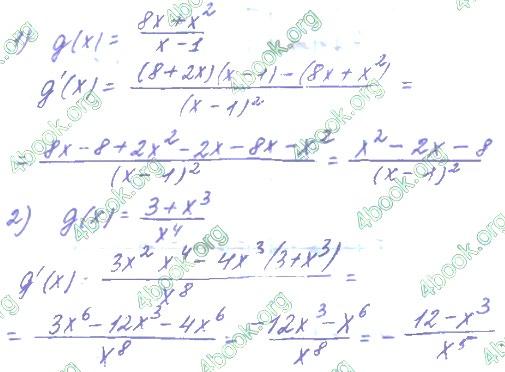 1) g(x) = (8x + x²)/(x - 1)
g'(x) = ((8 + 2x)(x - 1) - (8x + x²))/(x - 1)² =
= (8x - 8 + 2x² - 2x - 8x - x²)/(x - 1)² = (x² - 2x - 8)/(x - 1)²
2) g(x) = (3 + x³)/x⁴
g'(x) = (3x² x⁴ - 4x³(3 + x³))/x⁸ =
= (3x⁶ - 12x³ - 4x⁶)/x⁸ = (-12x³ - x⁶)/x⁸ = - (12 - x³)/x⁵
4book.org